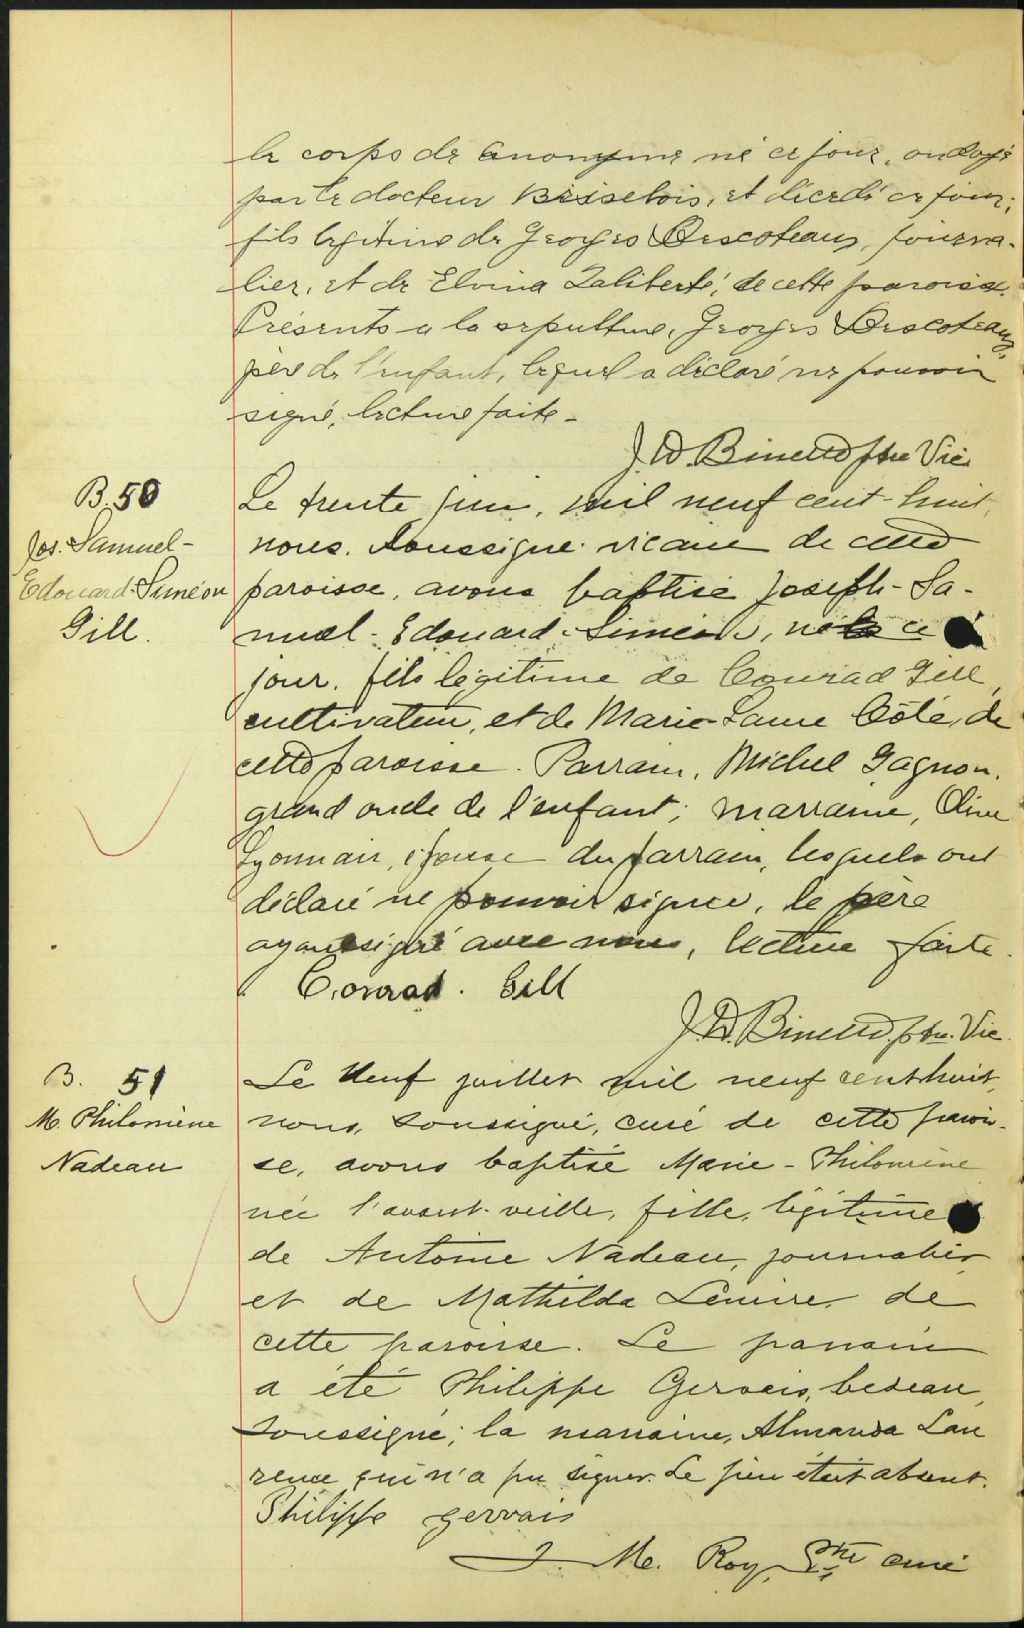 le corps de anonyme né ce jour, ondoyé
par le docteur Boisselois, et décédé ce jour;
fils légitime de Georges Descoteaux, journa-
lier, et de Elvina Laliberté, de cette paroisse.
Présents a la sepulture, Georges Descoteaux,
père de l'enfant, lequel a déclaré ne pouvoir
signé, lecture faite-
J. D. Binette ptre Vic.
B. 50
Jos. Samuel-
Edouard-Siméon
Gill.
Le trente juin, mil neuf cent-huit,
nous, soussigné vicaire de cette
paroisse, avons baptisé Joseph-Sa-
muel-Edouard-Siméon, né ce
jour, fils légitime de Conrad Gill,
cultivateur, et de Marie-Laure Côté, de
cette paroisse. Parrain, Michel Gagnon,
grand oncle de l'enfant; marraine, Olive
Lyonnais, épouse du parrain, lesquels ont
déclaré ne pouvoir signer, le père
ayant signé avec nous, lecture faite.
Conrad. Gill
J. D. Binette. ptre. Vic.
B. 51
M. Philomène
Nadeau
Le Neuf juillet mil neuf cent huit,
nous, soussigné, curé de cette parois-
se, avons baptisé Marie-Philomène
née l'avant-veille, fille, légitime
de Antoine Nadeau, journalier
et de Mathilda Lemire, de
cette paroisse. Le parrain
a été Philippe Gervais, bedeau,
soussigné; la marraine, Almanda Lau
rence qui n'a pu signer. Le père était absent.
Philippe gervais
J. M. Roy, Ptre curé